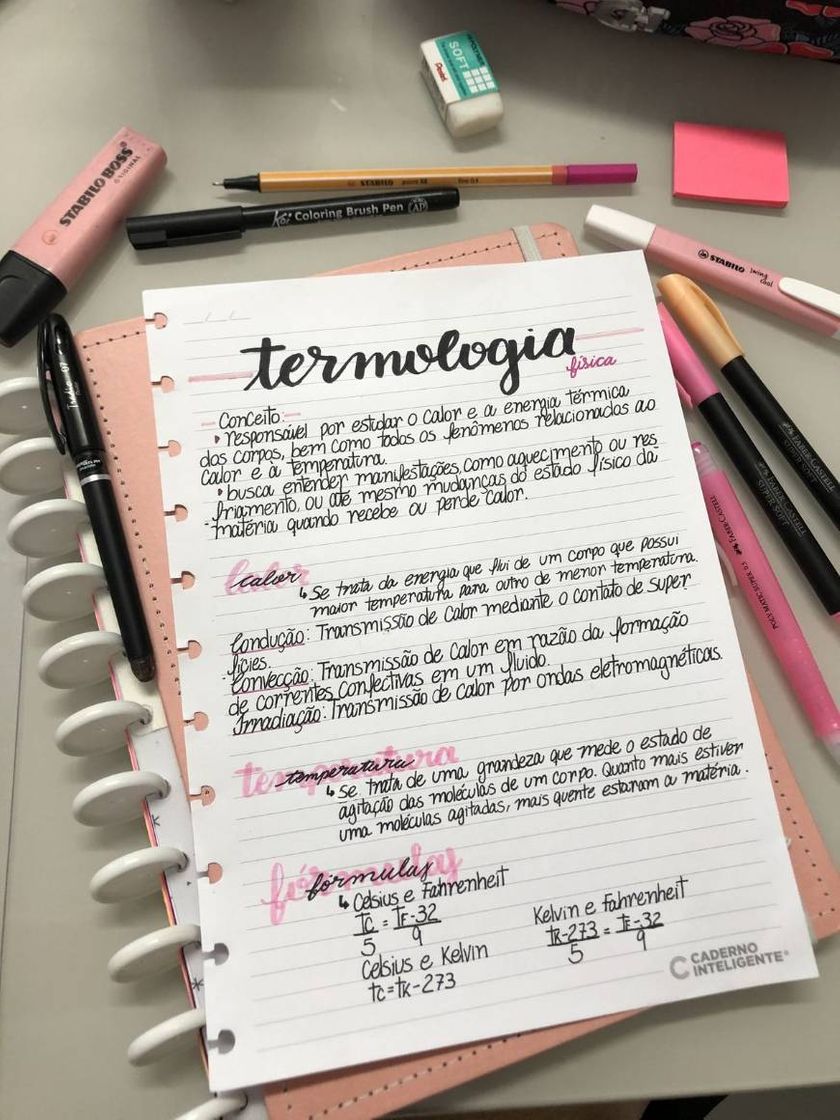 SOFT
Pentel
STABILO BOSS
ORIGINAL
STABILO point 88 fine 0.4
Koi Coloring Brush Pen AP
STABILO swing cool
termologia
física
Conceito:
• responsável por estudar o calor e a energia térmica
dos corpos, bem como todos os fenômenos relacionados ao
calor e à temperatura.
• busca entender manifestações, como aquecimento ou res
friamento, ou até mesmo mudanças do estado físico da
matéria quando recebe ou perde calor.
calor
↳ Se trata da energia que flui de um corpo que possui
maior temperatura para outro de menor temperatura.
Condução: Transmissão de calor mediante o contato de super
fícies.
Convecção: Transmissão de calor em razão da formação
de correntes confectivas em um fluido.
Irradiação: Transmissão de calor por ondas eletromagnéticas.
temperatura
↳ Se trata de uma grandeza que mede o estado de
agitação das moléculas de um corpo. Quanto mais estiver
uma moléculas agitadas, mais quente estaram a matéria.
fórmulas
↳ Celsius e Fahrenheit
Tc = TF-32
5 9
Celsius e Kelvin
tc = tk - 273
Kelvin e Fahrenheit
tk-273 = tF-32
5 9
CADERNO
INTELIGENTE®
FABER-CASTELL
SUPER SOFT
FABER-CASTELL
POLY MATIC SUPER 0.5 FABER-CASTELL